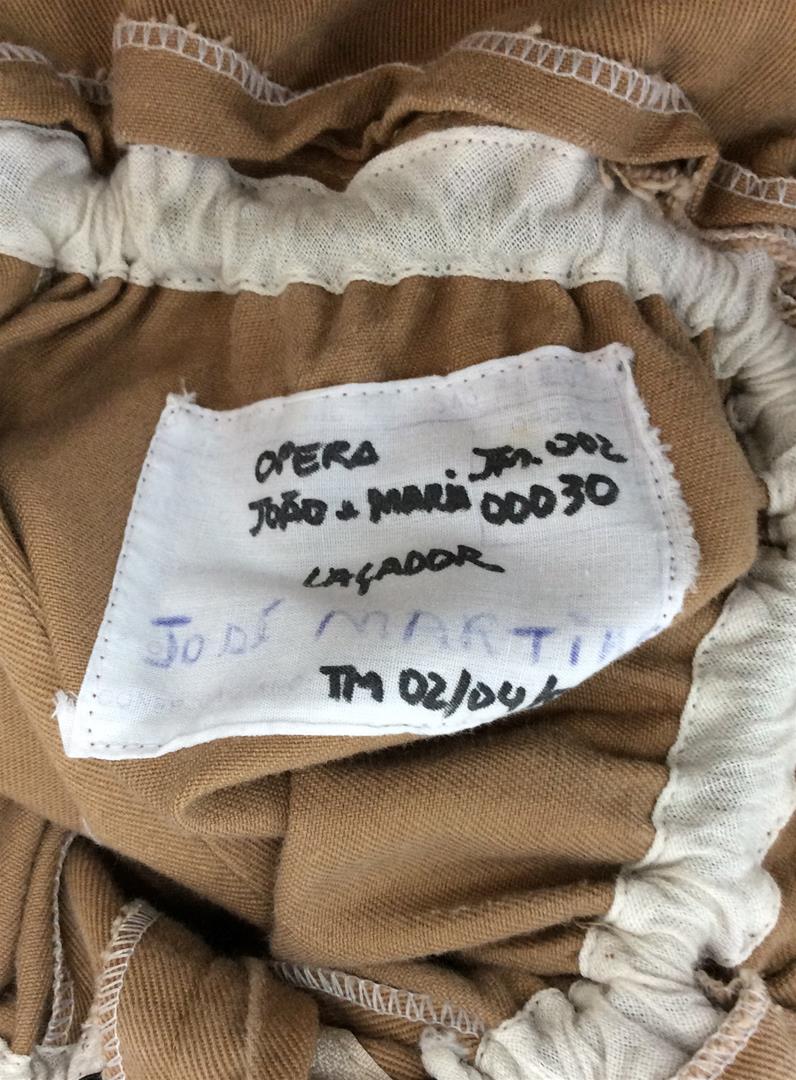 OPERA
JOÃO e MARIA 00030
LAÇADOR
JOSÉ MARTIN
TM 02/04/